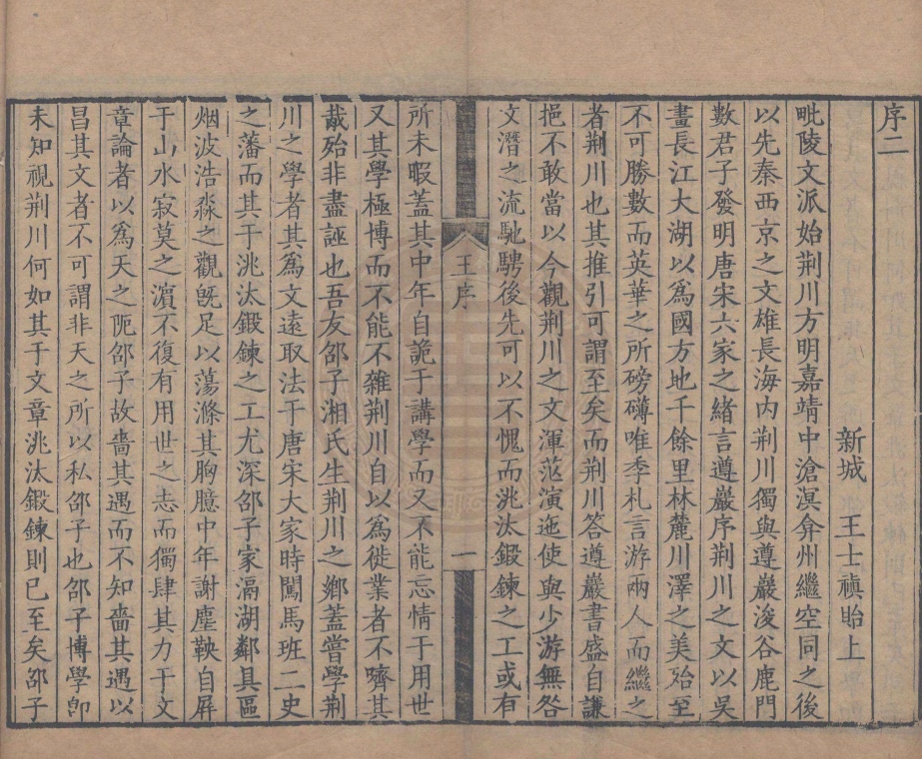 序二
新城　王士禛貽上
毗陵文派始荆川方明嘉靖中滄溟弇州繼空同之後
以先秦西京之文雄長海内荆川獨與遵巖浚谷鹿門
數君子發明唐宋六家之緒言遵巖序荆川之文以吳
畫長江大湖以爲國方地千餘里林麓川澤之美殆至
不可勝數而英華之所磅礴唯季札言游兩人而繼之
者荆川也其推引可謂至矣而荆川答遵巖書盛自謙
挹不敢當以今觀荆川之文渾范演迤使與少游無咎
文潛之流馳騁後先可以不愧而洮汰鍛鍊之工或有
王序
一
所未暇蓋其中年自詭于講學而又不能忘情于用世
又其學極博而不能不雜荆川自以爲徙業者不嚌其
胾殆非盡誣也吾友邵子湘氏生荆川之鄉蓋嘗學荆
川之學者其爲文遠取法于唐宋大家時闖馬班二史
之藩而其于洮汰鍛鍊之工尤深邵子家滆湖鄰具區
烟波浩淼之觀旣足以蕩滌其胸臆中年謝塵鞅自屏
于山水寂莫之濵不復有用世之志而獨肆其力于文
章論者以爲天之阨邵子故嗇其遇而不知嗇其遇以
昌其文者不可謂非天之所以私邵子也邵子博學卽
未知視荆川何如其于文章洮汰鍛鍊則已至矣邵子